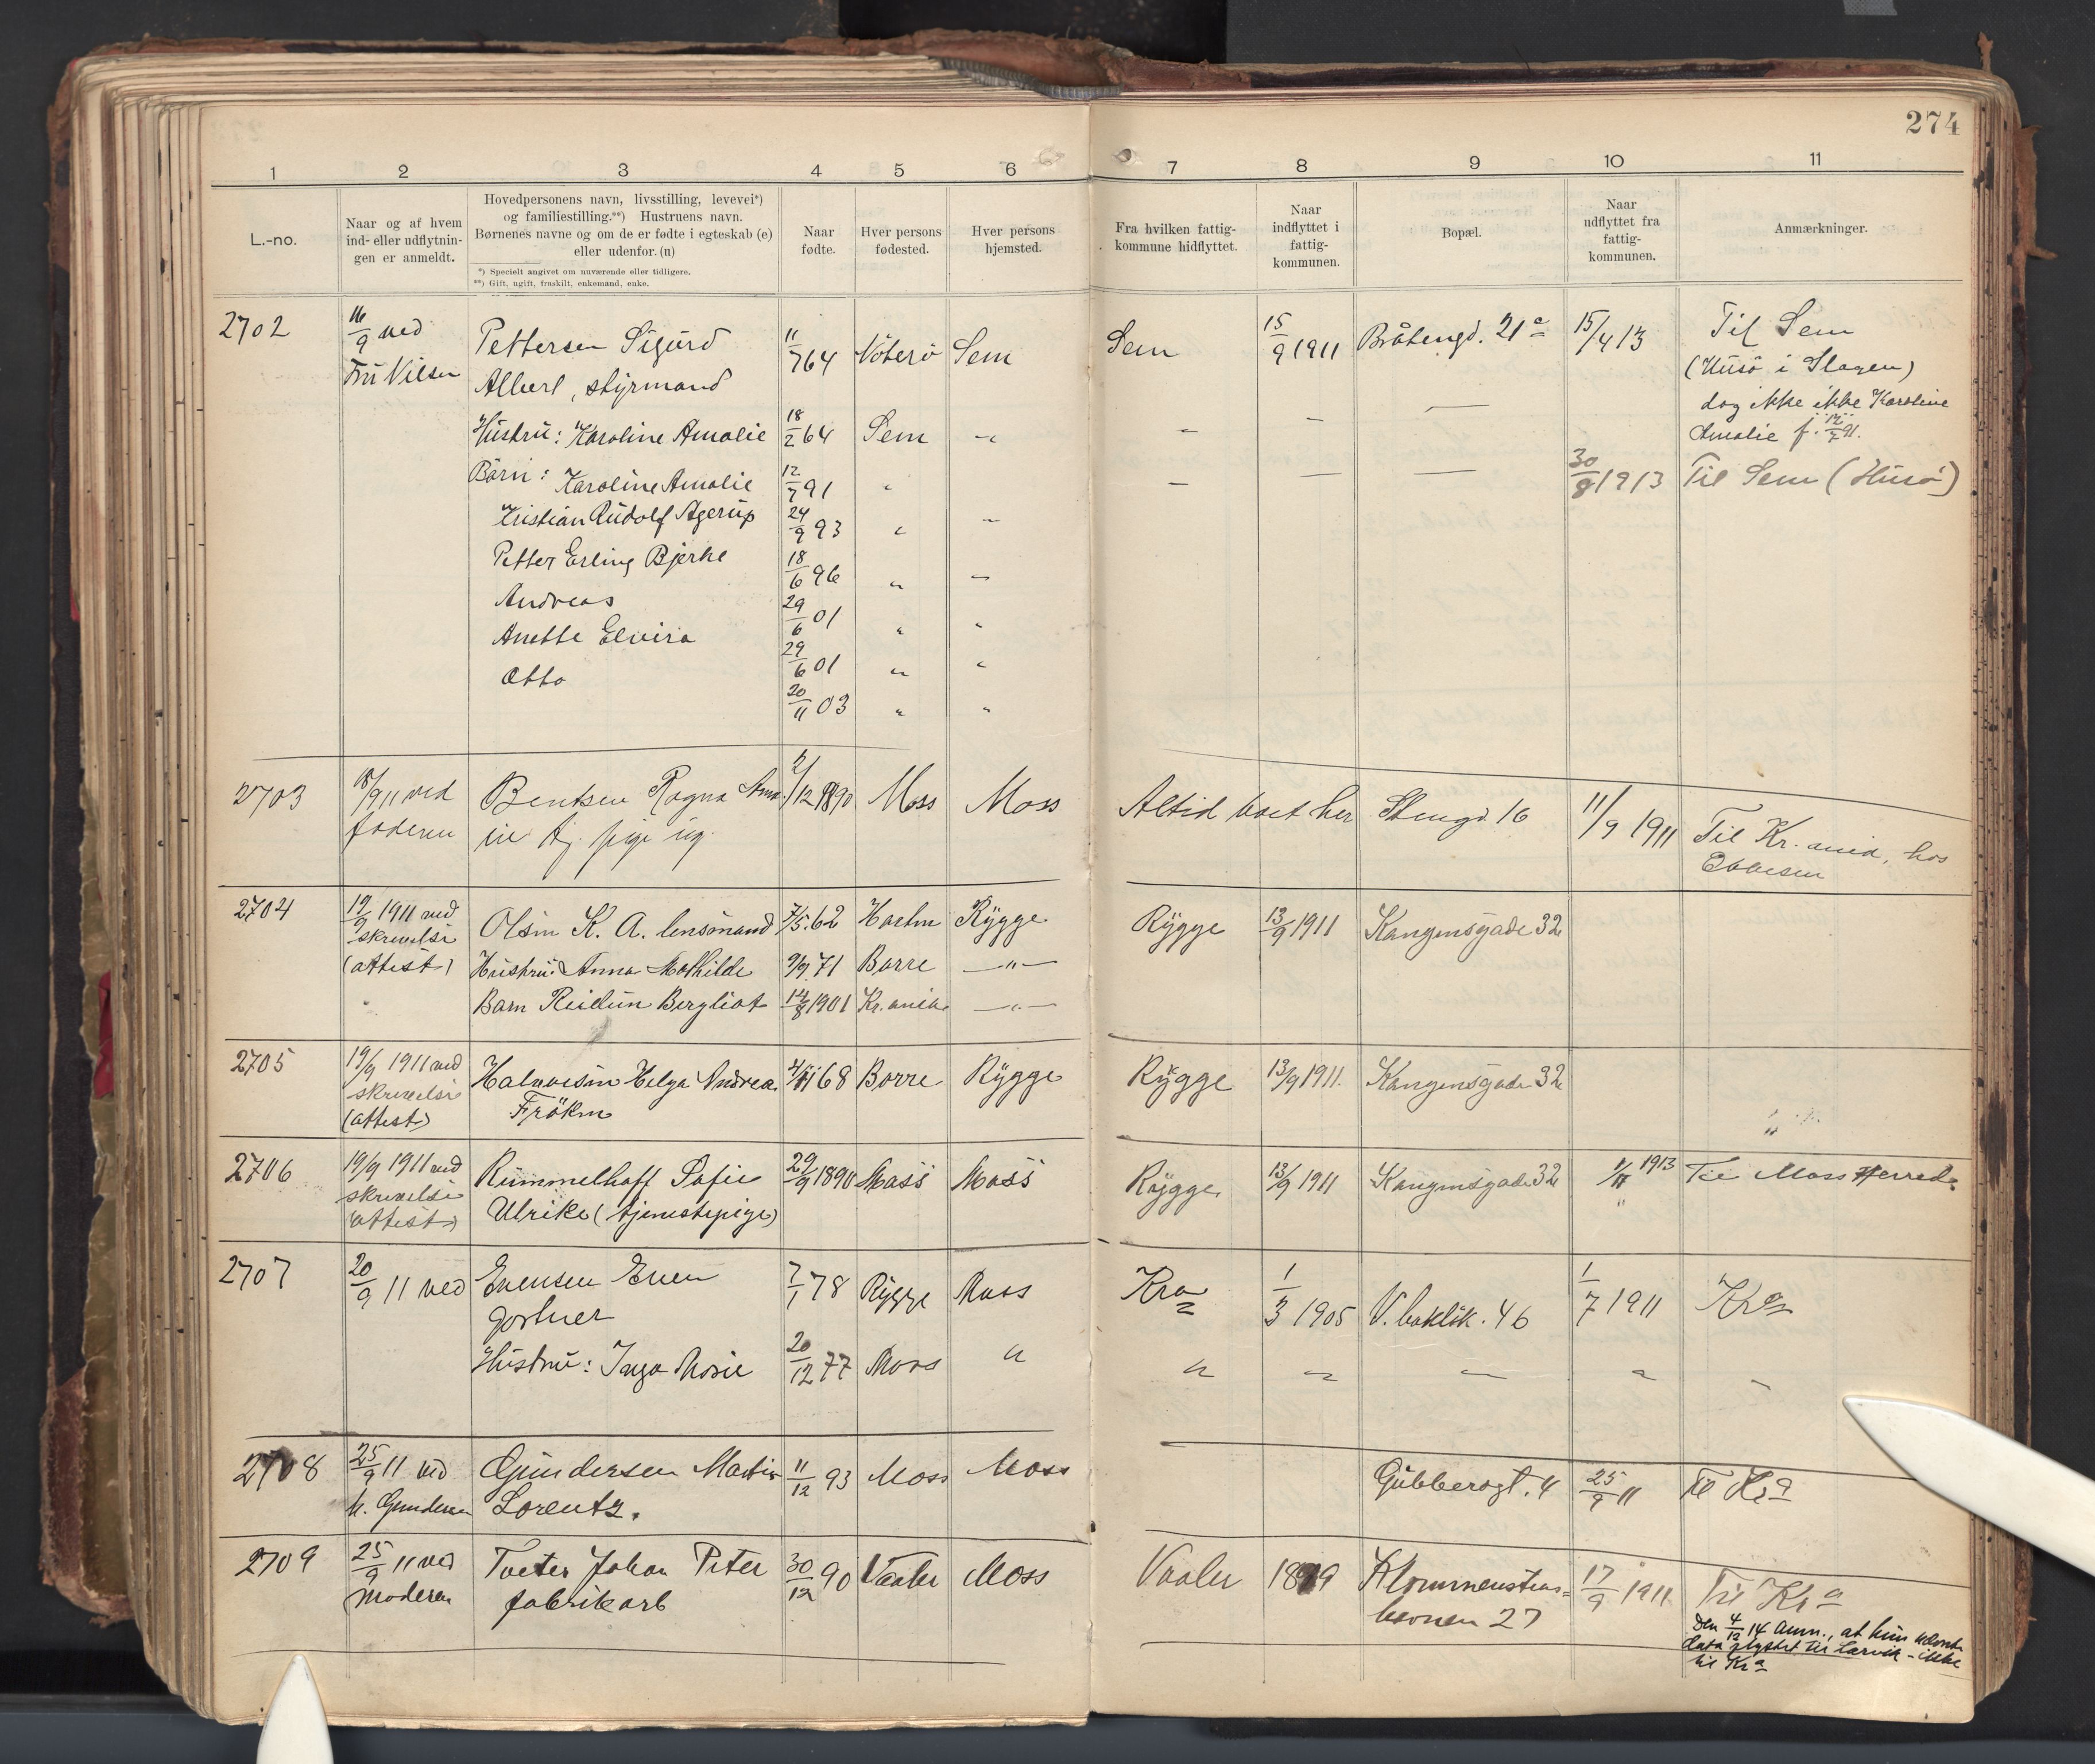 274
1 2 3 4 5 6 7 8 9 10 11
L.-no.
Naar og af hvem
ind- eller udflytnin-
gen er anmeldt.
Hovedpersonens navn, livsstilling, levevei*)
og familiestilling.**) Hustruens navn.
Børnenes navne og om de er fødte i egteskab (e)
eller udenfor. (u)
*) Specielt angivet om nuværende eller tidligere.
**) Gift, ugift, fraskilt, enkemand, enke.
Naar
fødte.
Hver persons
fødested.
Hver persons
hjemsted.
Fra hvilken fattig-
kommune hidflyttet.
Naar
indflyttet i
fattig-
kommunen.
Bopæl.
Naar
udflyttet fra
fattig-
kommunen.
Anmærkninger.
2702 16/9 ved Pettersen Sigurd 11/7 64 Nöterö Sem Sem 15/9 1911 Bråtengd. 21 15/4 13 Til Sem
Fru Nilsen Albert, styrmand (Husö i Slagen)
dog ikke ikke Karoline
Hustru: Karoline Amalie 18/2 64 Sem " " - - Amalie f. 12/7 91.
Börn: Karoline Amalie 12/7 91 " - - - 30/8 1913 Til Sem (Husö)
Kristian Rudolf Agerup 24/9 93 " "
Petter Erling Bjerke 18/6 96 " "
Andreas 29/6 01 " "
Anette Elvira 29/6 01 " "
Otto 20/11 03 " "
2703 18/9 11 ved Bentsen Ragna 2/12 1890 Moss Moss Altid boet her Stengd. 16 11/9 1911 Til Kr.ania, hos
faderen tj. pige ug. Ebbesen
2704 19/9 1911 ved Olsen K. A. lensmand 7/5 62 Rygge Rygge 13/9 1911 Kongensgade 32
skrivelse
(attest) Hustru: Anna Mathilde 9/9 71 Borre -"-
Barn Reidun Bergliot 14/8 1901 Kr.ania -"-
2705 19/9 1911 ved Halvorsen Helga Andrea 68 Borre Rygge Rygge 13/9 1911. Kongensgade 32
skrivelse Fröken
(attest)
2706 19/9 1911 ved Rummelhoff Sofie 29/9 1890 Moss Moss Rygge 13/9 1911 Kongensgade 32 1913 Til Moss Herred.
skrivelse Ulrike (tjenestepige)
(attest)
2707 20/9 11 ved Evensen Even 7/1 78 Rygge Moss Kra 1/3 1905 V. baklik. 46 1/7 1911 Kra
gartner
Hustru: Inga Marie 20/12 77 Moss " " " - " -
2708 25/9 11 ved Gundersen Martin 11/12 93 Moss Moss Gubberogt. 4 25/9 11 Til Kra
Gundersen Lorentz.
2709 25/9 11 ved Tveter Johan Peter 30/12 90 Vaaler Moss Vaaler 1899 17/9 1911 Til Kra
Moderen fabrikarb 27
Den 4/12 14 anm., at hun
data flyttet til Larvik - ikke
til Kra